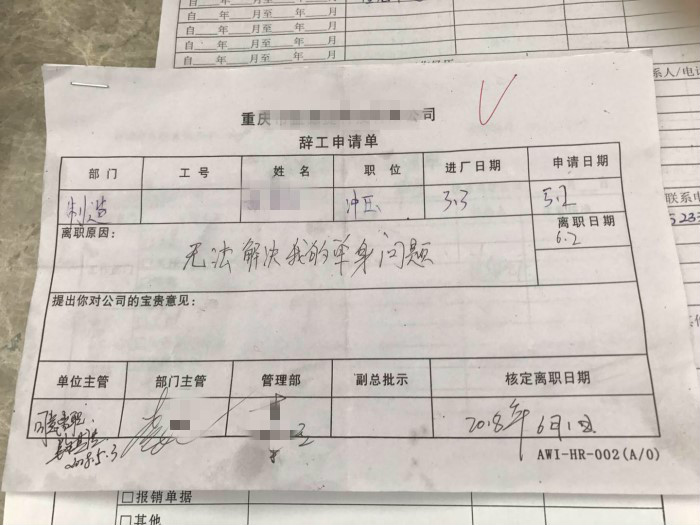 自 年 月至 年 月
自 年 月至 年 月
自 年 月至 年 月
自 年 月至 年 月
系人/电话
重庆 公司
辞工申请单
部门 工号 姓名 职位 进厂日期 申请日期
制造 冲压 3.3 5.2
离职原因: 离职日期
无法解决我的单身问题 6.2
联系电
提出你对公司的宝贵意见:
单位主管 部门主管 管理部 副总批示 核定离职日期
2018.5.3 2018年6月1日
AWI-HR-002(A/0)
□报销单据
□其他